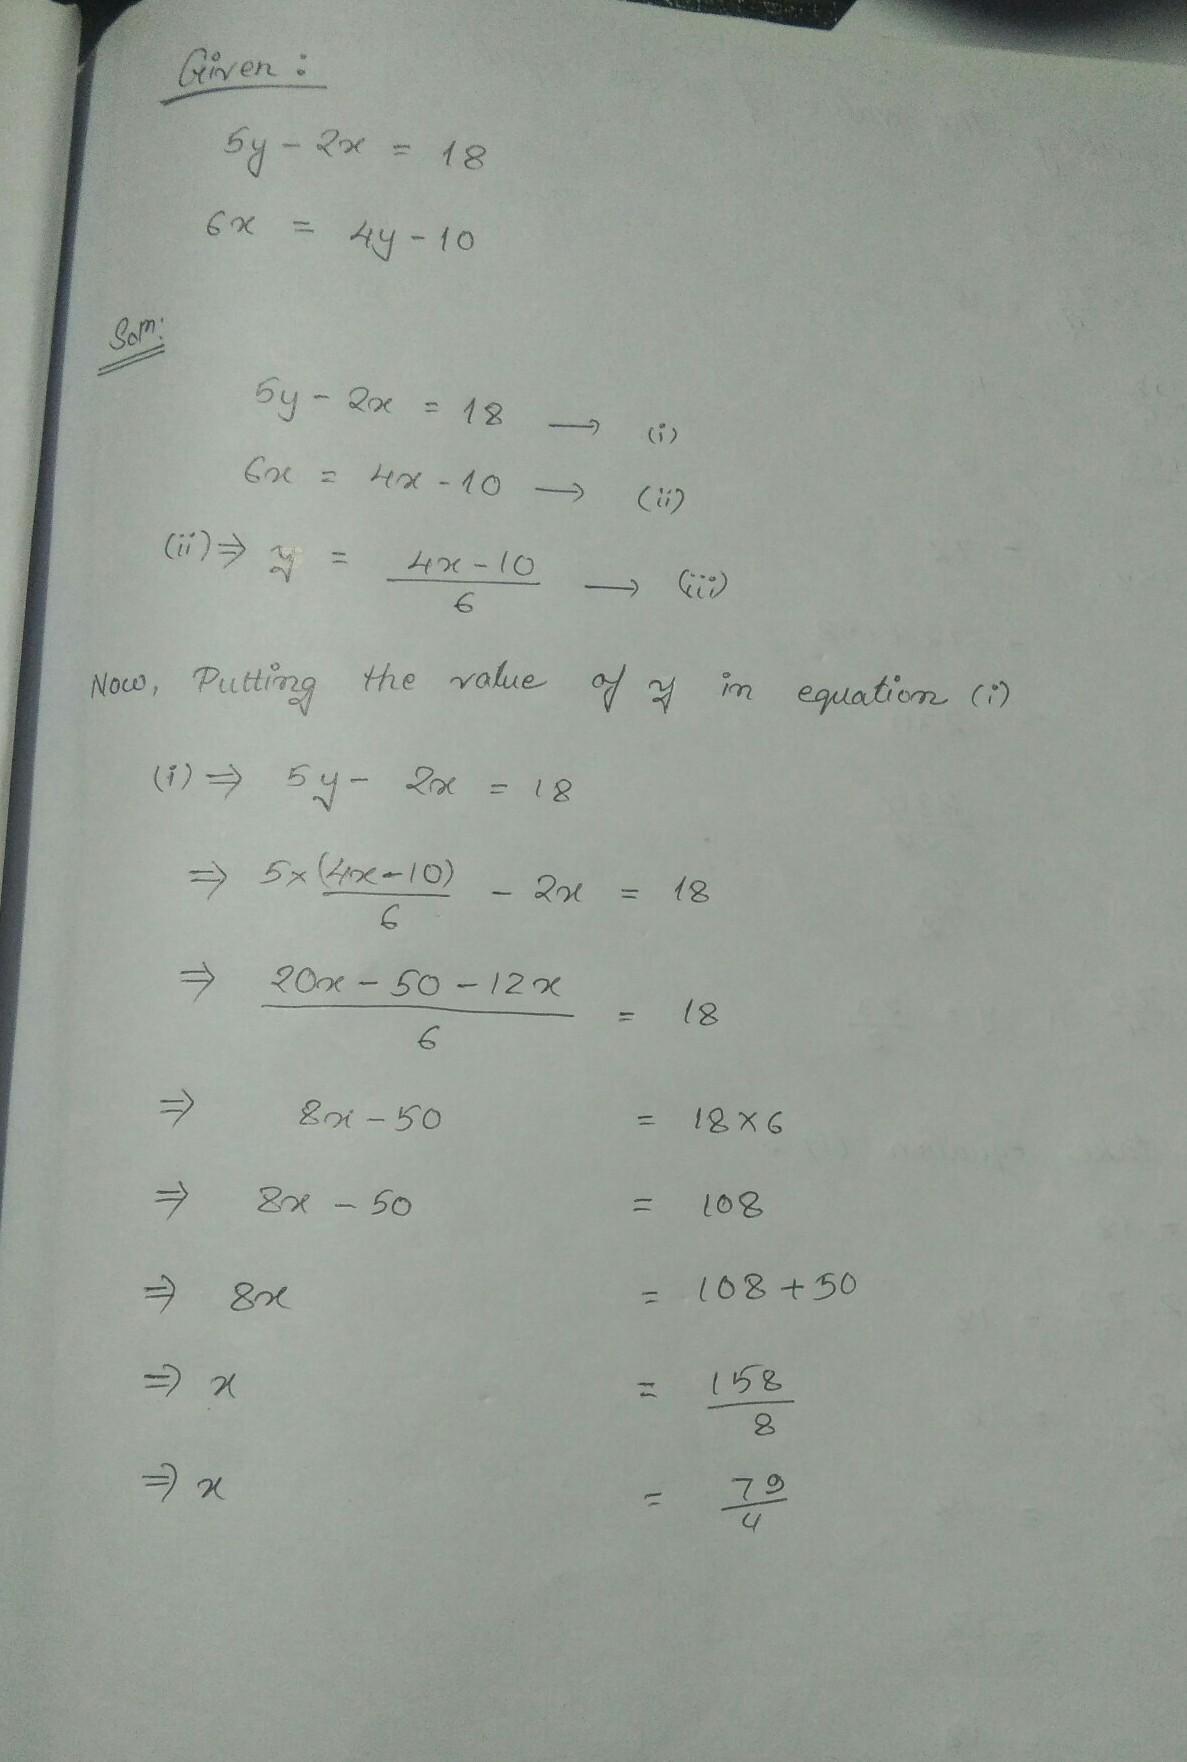 Given :
5y - 2x = 18
6x = 4y - 10
Soln:
5y - 2x = 18 → (i)
6x = 4x - 10 → (ii)
(ii) ⇒ y = (4x - 10)/6 → (iii)
Now, Putting the value of y in equation (i)
(i) ⇒ 5y - 2x = 18
⇒ 5 × (4x - 10)/6 - 2x = 18
⇒ (20x - 50 - 12x)/6 = 18
⇒ 8x - 50 = 18 × 6
⇒ 8x - 50 = 108
⇒ 8x = 108 + 50
⇒ x = 158/8
⇒ x = 79/4